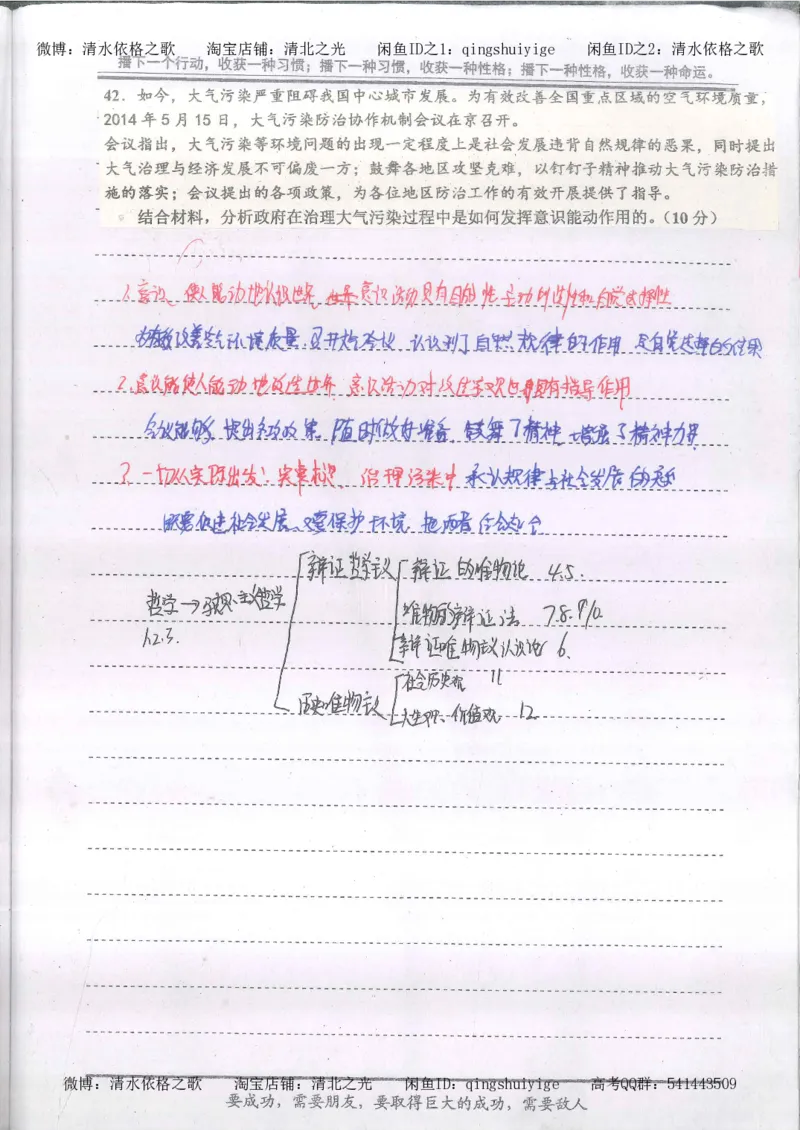 微博：清水依格之歌 淘宝店铺：清北之光 闲鱼ID之1：qingshuiyige 闲鱼ID之2：清水依格之歌
播下一个行动，收获一种习惯；播下一种习惯，收获一种性格；播下一种性格，收获一种命运。
42．如今，大气污染严重阻碍我国中心城市发展。为有效改善全国重点区域的空气环境质量，
2014年5月15日，大气污染防治协作机制会议在京召开。
会议指出，大气污染等环境问题的出现一定程度上是社会发展违背自然规律的恶果，同时提出
大气治理与经济发展不可偏废一方；鼓舞各地区攻坚克难，以钉钉子精神推动大气污染防治措
施的落实；会议提出的各项政策，为各位地区防治工作的有效开展提供了指导。
结合材料，分析政府在治理大气污染过程中是如何发挥意识能动作用的。（10分）
意识 使人能动地认识世界 意识活动具有目的性 主动创造性和自觉选择性
改善空气环境质量 召开会议 认识到了自然规律的作用 是自觉选择的结果
2.意识能使人能动地改造世界 意识活动对改造客观世界具有指导作用
会议能够提出各项政策 随时做好准备 鼓舞了精神 增强了精神力量
3.一切从实际出发 实事求是 治理污染中 承认规律与社会发展的
既要促进社会发展 又要保护环境 把两者结合起来
辩证唯物主义 辩证的唯物论 4.5.
哲学→马克思主义哲学 唯物的辩证法 7.8.9.10.
1.2.3. 辩证唯物主义认识论 6.
社会历史观 11
历史唯物主义 人生观、价值观 12
微博：清水依格之歌 淘宝店铺：清北之光 闲鱼ID：qingshuiyige 高考QQ群：541443509
要成功，需要朋友，要取得巨大的成功，需要敌人